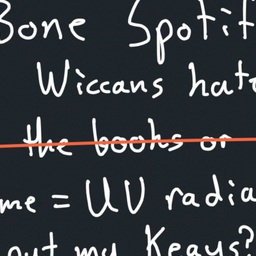 Bone Spotif
Wiccans hate
the books or
me = UV radia
out my Keays?